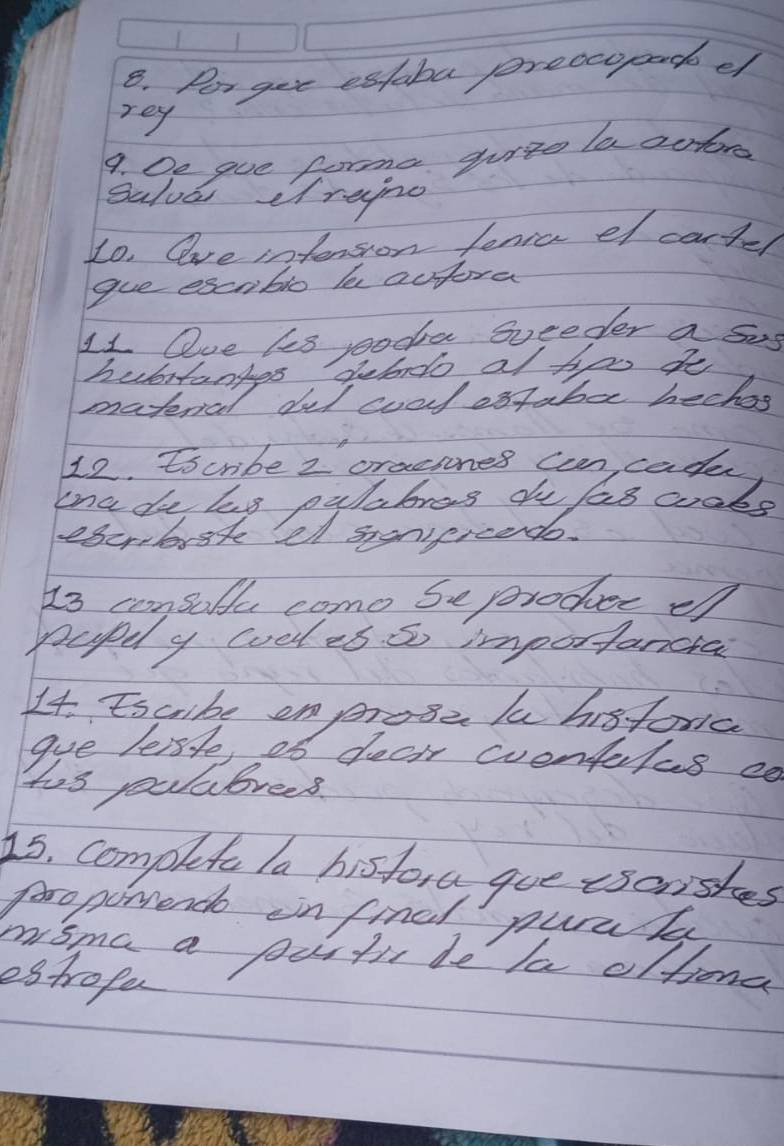 8. Por que estaba preocopado el
rey
9. De que forma quizo la autora
Salvar el reyno
10. Que intension tenia el cartel
que escribio la autora
11 Que les podia suceeder a sus
habitantes debido al tipo de
material del cual estaba hechos
12. Escribe 2 oraciones con cada
una de las palabras de las cuales
escribiste el significado.
13 consulta como se produce el
papel y cual es su importancia
14. Escribe en prosa la historia
que leiste, es decir cuentalas co
tus palabras.
15. completa la histora que escristes
proponiendo un final para la
misma a partir de la oltima
estrofa